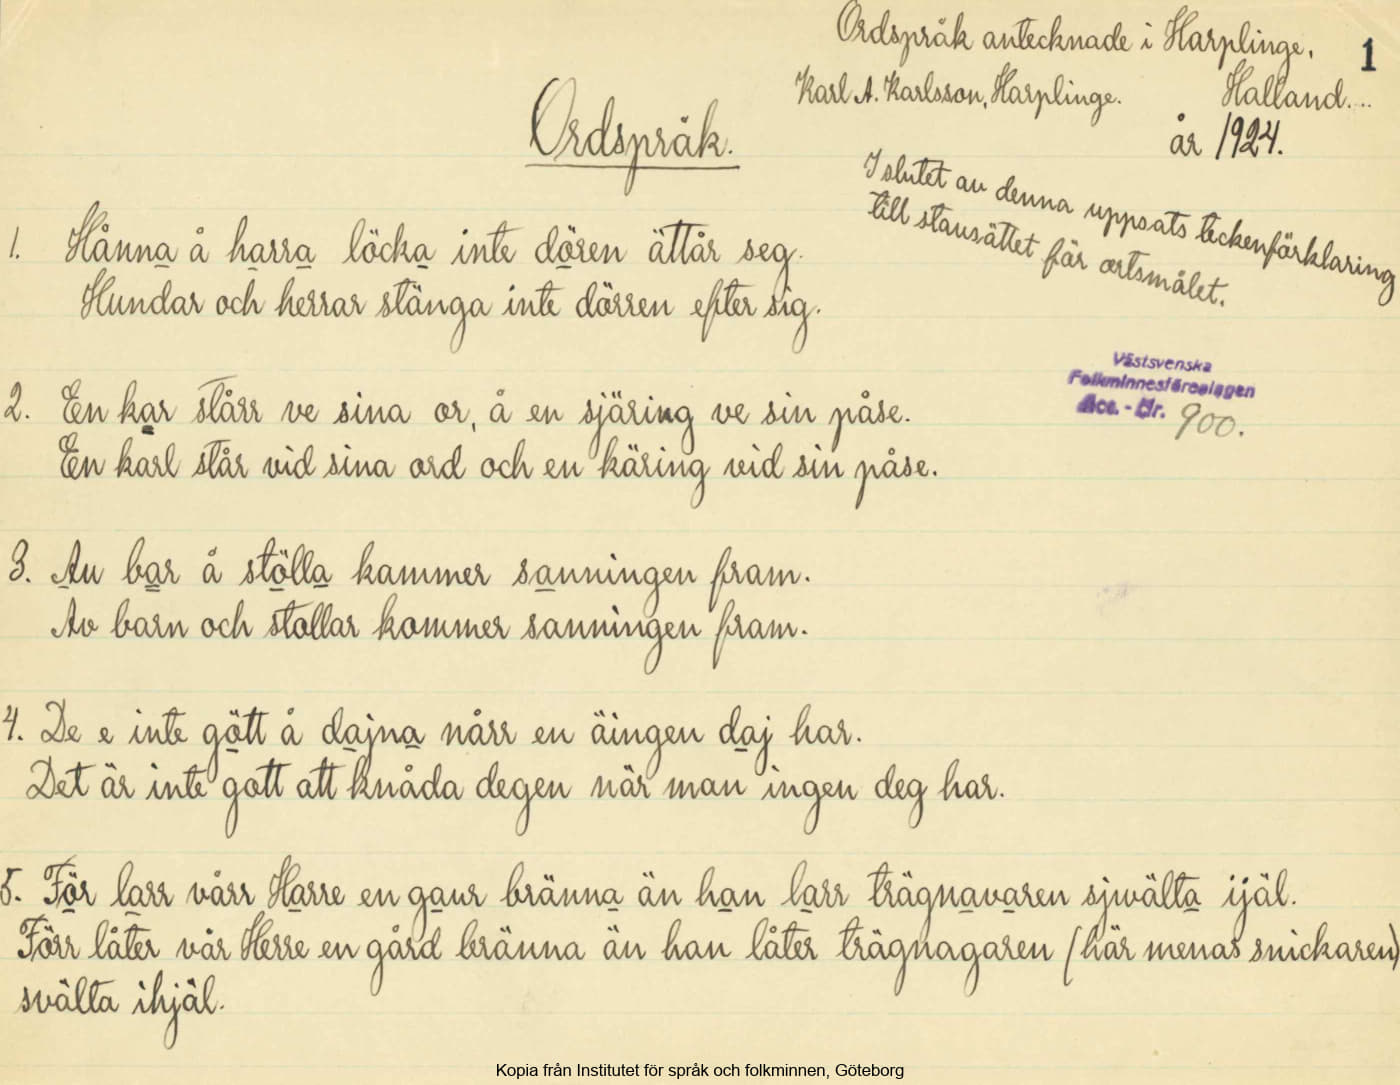 Ordspråk antecknade i Harplinge,
1
Karl A. Karlsson, Harplinge. Halland...
år 1924.
Ordspråk.
I slutet av denna uppsats teckenförklaring
till stavsättet för ortsmålet.
1. Hånna å harra löcka inte dören ättår seg.
Hundar och herrar stänga inte dörren efter sig.
Västsvenska
Folkminnesföreningen
Acc. - Nr. 900.
2. En kar stårr ve sina or, å en sjäring ve sin påse.
En karl står vid sina ord och en käring vid sin påse.
3. Au bar å stölla kammer sanningen fram.
Av barn och stollar kommer sanningen fram.
4. De e inte gött å dajna nårr en äingen daj har.
Det är inte gott att knåda degen när man ingen deg har.
5. För larr vårr Harre en gaur bränna än han larr trägnavaren sjwälta ijäl.
Förr låter vår Herre en gård bränna än han låter trägnagaren (här menas snickaren)
svälta ihjäl.
Kopia från Institutet för språk och folkminnen, Göteborg